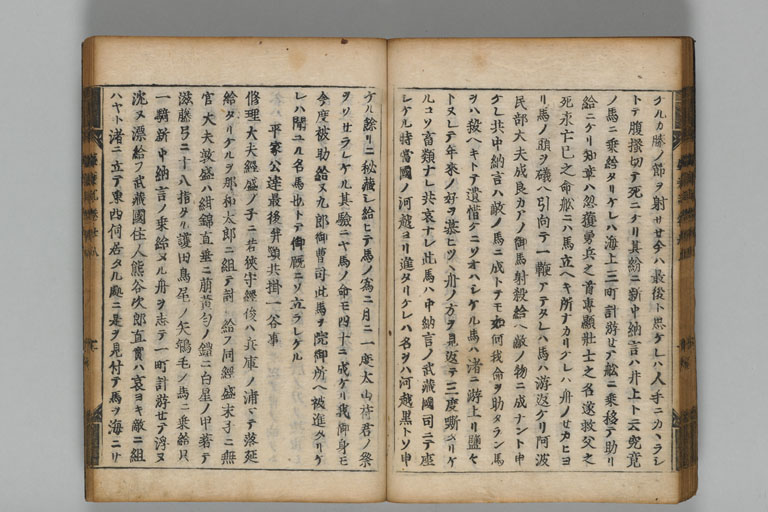 ケルカ膝ノ節ヲ射サセ今ハ最後ト思ケレハ人手ニカヽラシ
トテ腹掻切テ死ニケリ其紛ニ新中納言ハ井上ト云究竟
ノ馬ニ乗給タリケレハ海上三町計游セテ舩ニ乗移テ助リ
給ニケリ知章ハ忽獲勇兵之首専顕壮士之名遂救父之
死永亡己之命舩ニハ馬立ヘキ所ナカリケレハ舟ノセカヒヨ
リ馬ノ頭ヲ礒ヘ引向テ一鞭アテタレハ馬ハ游返ケリ阿波
民部大夫成良カアノ御馬射殺給ヘ敵ノ物ニ成ナント申
ケレ共中納言ハ敵ノ馬ニ成トテモ如何我命ヲ助タラン馬
ヲハ殺ヘキトテ遺惜ケニソオハシケル馬ハ渚ニ游上リ塩々
トヌレテ年来ノ好ヲ慕ヒツヽ舟ノ方ヲ見返テ三度嘶タリケ
ルコソ畜類ナレ共哀ナレ此馬ハ中納言ノ武蔵國司ニテ座
シケル時當國ノ河越ヨリ進タリケレハ名ヲハ河越黒トソ申
ケル餘リニ秘蔵シ給ヒテ馬ノ為ニ月ニ一度太山府君ノ祭
ヲソセラレケル其驗ニヤ馬ノ命モ四十ニ成ケリ我御身モ
今度被助給ヌ九郎御曹司此馬ヲ院御所ヘ被進タリケ
レハ聞ユル名馬也トテ御厩ニソ立ラレケル
平家公達最後并頸共掛一谷事
修理大夫經盛ノ子ニ若狭守經俊ハ兵庫ノ浦マテ落延
給タリケルヲ那和太郎ニ組テ討レ給フ同經盛末子ニ無
官大夫敦盛ハ紺錦直垂ニ萠黄匂ノ鎧ニ白星ノ甲著テ
滋藤弓ニ十八指タル護田鳥尾ノ矢鴾毛ノ馬ニ乗給只
一騎新中納言ノ乗給ヌル舟ヲ志テ一町計游セテ浮ヌ
沈ヌ漂給フ武蔵國住人熊谷次郎直實ハ哀ヨキ敵ニ組
ハヤト渚ニ立テ東西伺居タル處ニ是ヲ見付テ馬ヲ海ニサ